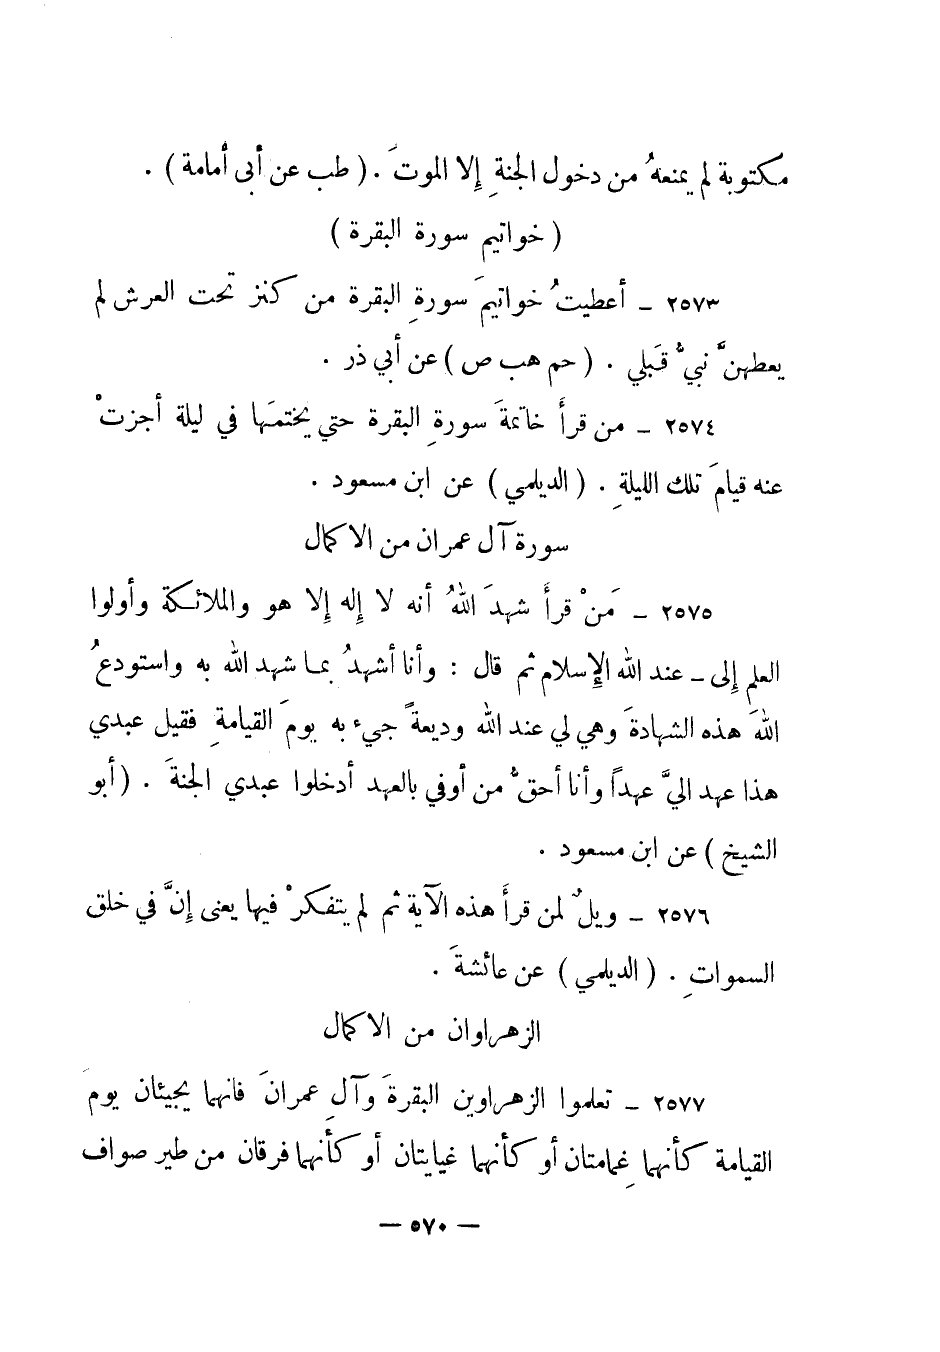 مكتوبة لم يمنعهُ من دخول الجنةِ إلا الموتَ . ( طب عن أبى أمامة ) .
( خواتيم سورة البقرة )
٢٥٧٣ ـ أعطيتُ خواتيمَ سورةِ البقرة من كنز تحت العرش لم
يعطهنَّ نبيٌّ قَبلي . ( حم هب ص ) عن أبي ذر .
٢٥٧٤ ـ من قرأَ خاتمةَ سورةِ البقرة حتي يختمَها في ليلة أجزتْ
عنه قيامَ تلك الليلةِ . ( الديلمي ) عن ابن مسعود .
سورة آل عمران من الاكمال
٢٥٧٥ ـ مَنْ قرأَ شهدَ اللهُ أنه لا إله إلا هو والملائكة وأولوا
العلم إلى ـ عند الله الإسلام ثم قال : وأنا أشهدُ بما شهد الله به واستودعُ
اللهَ هذه الشهادةَ وهي لي عند الله وديعةً جيء به يومَ القيامةِ فقيل عبدي
هذا عهد اليَّ عهداً وأنا أحقُّ من أوفي بالعهد أدخلوا عبدي الجنةَ . ( أبو
الشيخ ) عن ابن مسعود .
٢٥٧٦ ـ ويلٌ لمن قرأَ هذه الآية ثم لم يتفكرْ فيها يعنى إنَّ في خلق
السمواتِ . ( الديلمي ) عن عائشةَ .
الزهراوان من الاكمال
٢٥٧٧ ـ تعلموا الزهراوين البقرةَ وآلِ عمرانَ فانهما يجيئان يومَ
القيامة كأنهما غِمامتان أو كأنهما غيايتان أو كأنهما فرقان من طير صواف
— ٥٧٠ —